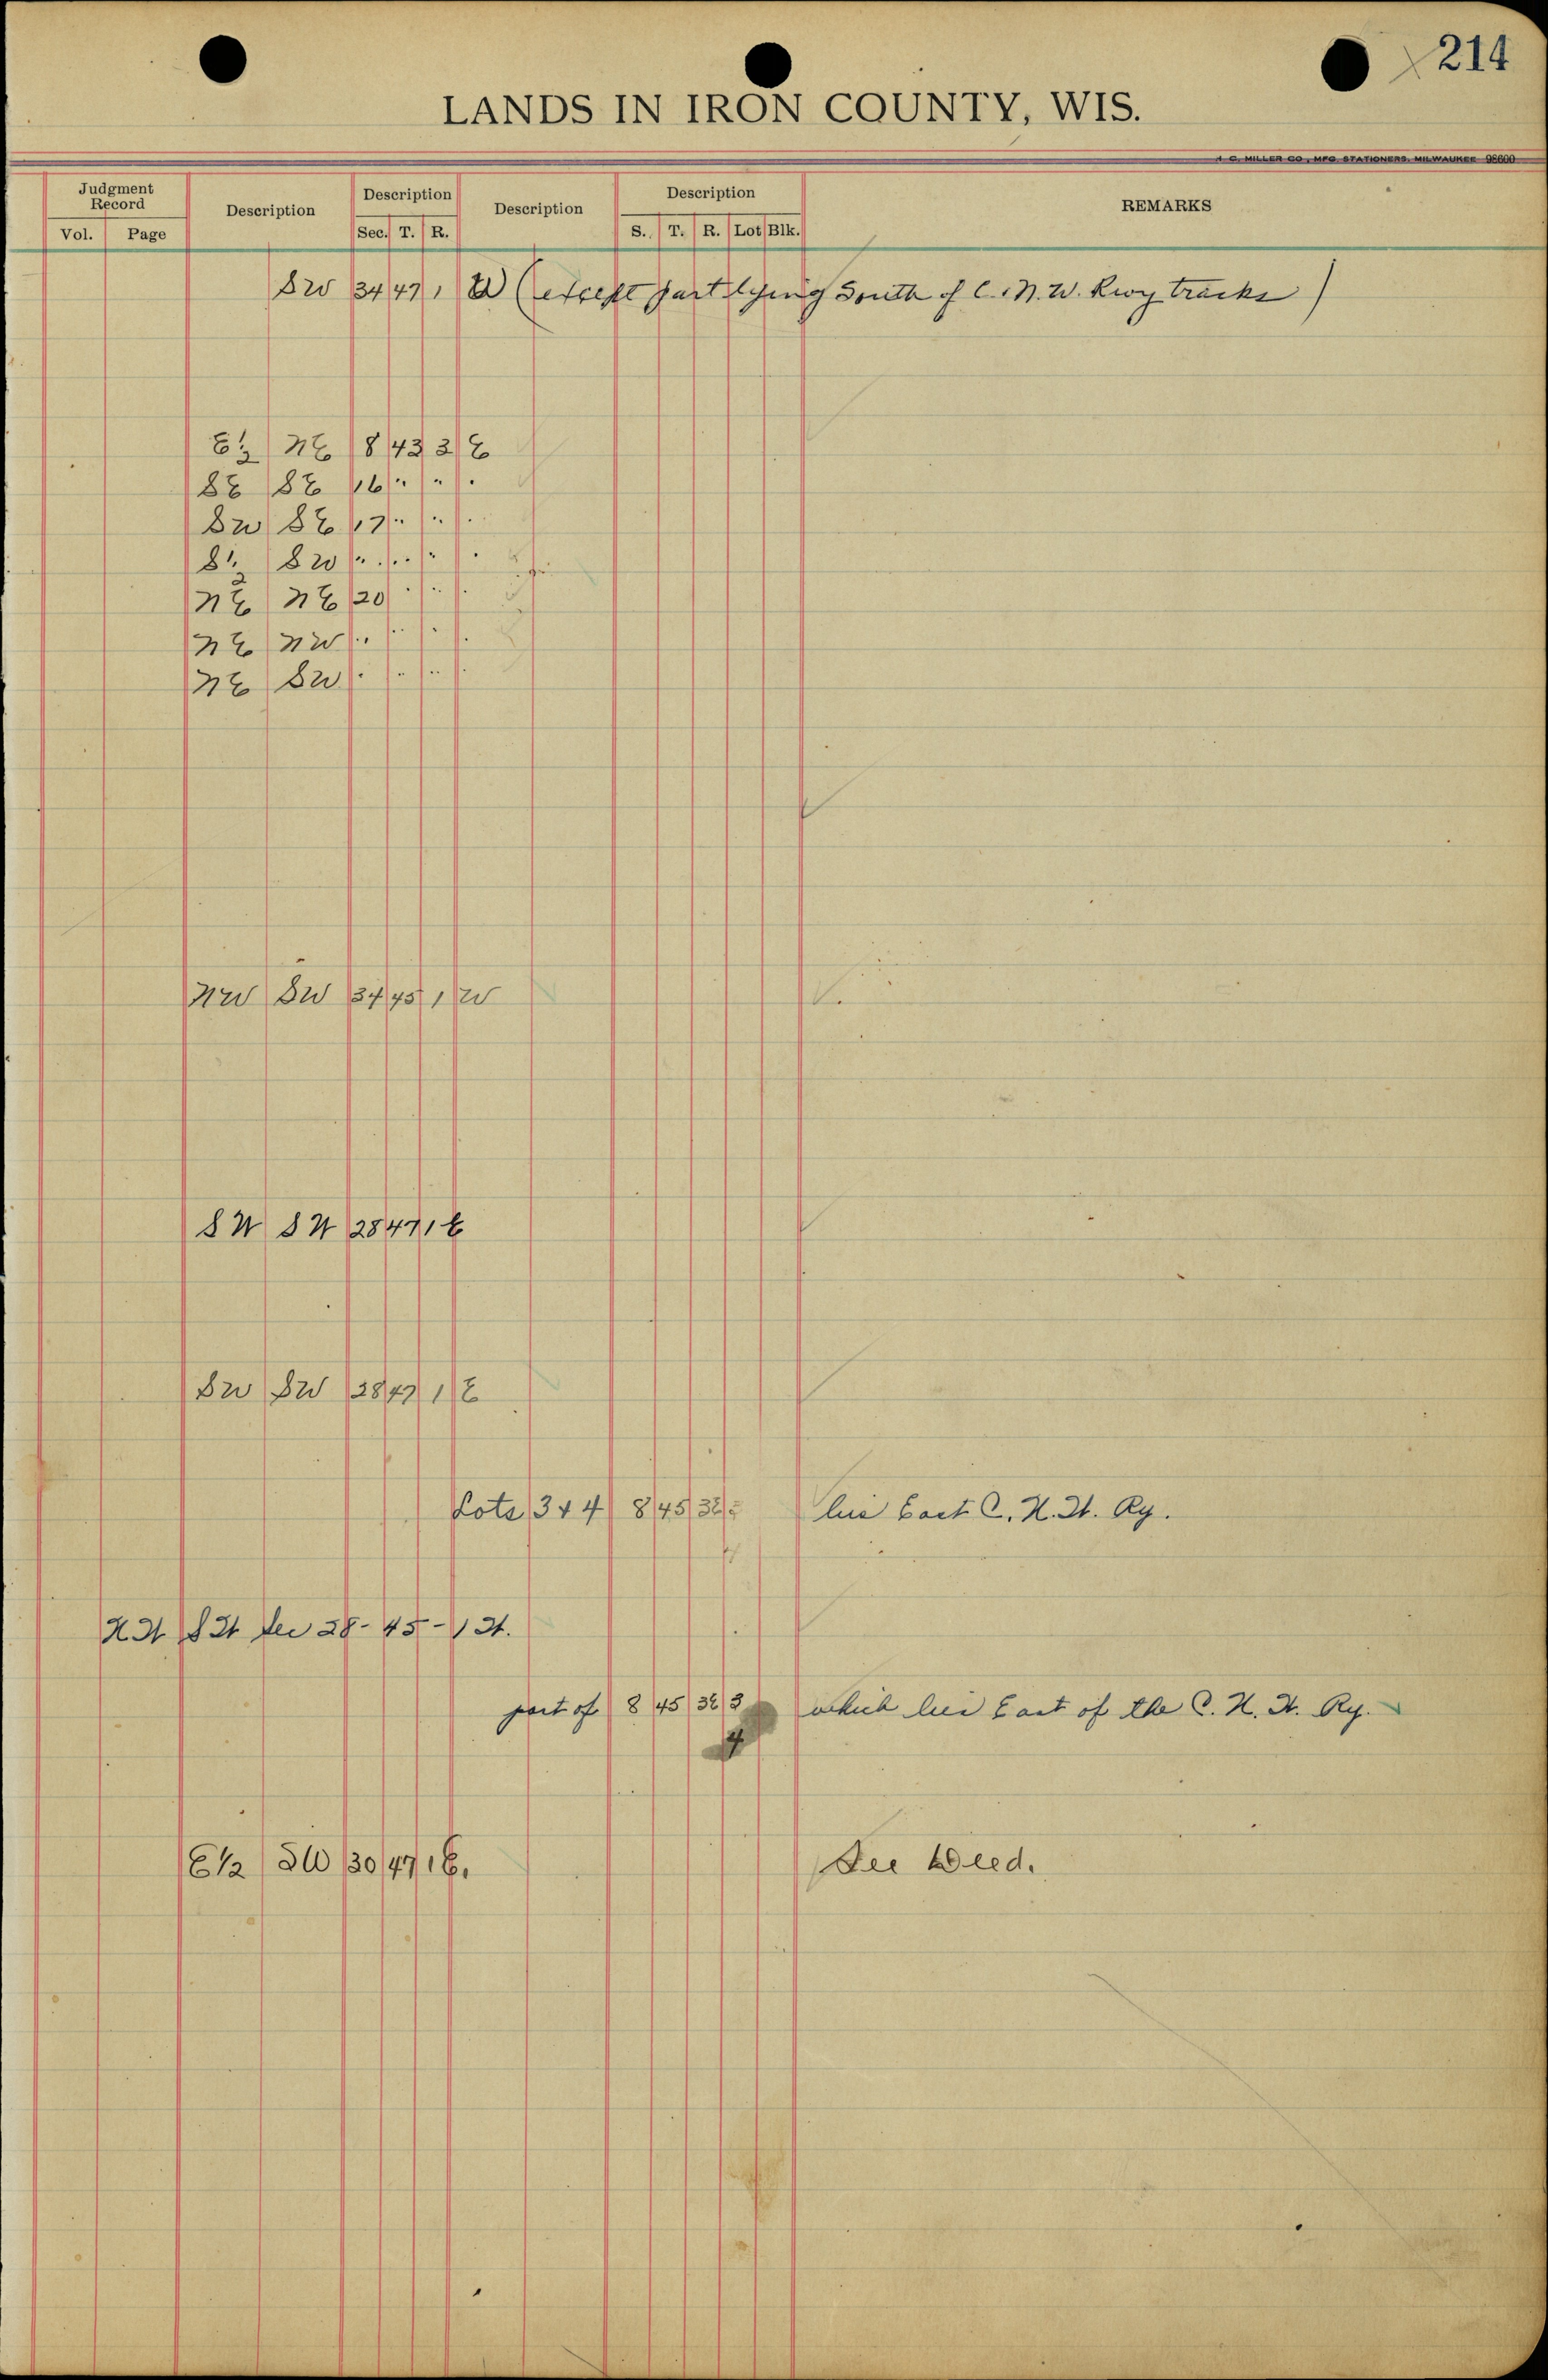 214
LANDS IN IRON COUNTY, WIS.
H. C. MILLER CO., MFG. STATIONERS, MILWAUKEE 98600
Judgment Record Description Description Description Description REMARKS
Vol. Page Sec. T. R. S. T. R. Lot Blk.
SW 34 47 1 W (except part lying South of C. & N. W. Rwy tracks)
E½ NE 8 43 3 E
SE SE 16 " " "
SW SE 17 " " "
S½ SW " " " "
NE NE 20 " " "
NE NW " " " "
NE SW " " " "
NW SW 34 45 1 W
SW SW 28 47 1 E
SW SW 28 47 1 E
Lots 3 & 4 8 45 3E lie East C. N. W. Ry.
N.W S W Sec 28-45-1 W.
part of 8 45 3E 3 which lies East of the C. N. W. Ry.
4
E½ SW 30 47 1 E. See Deed.